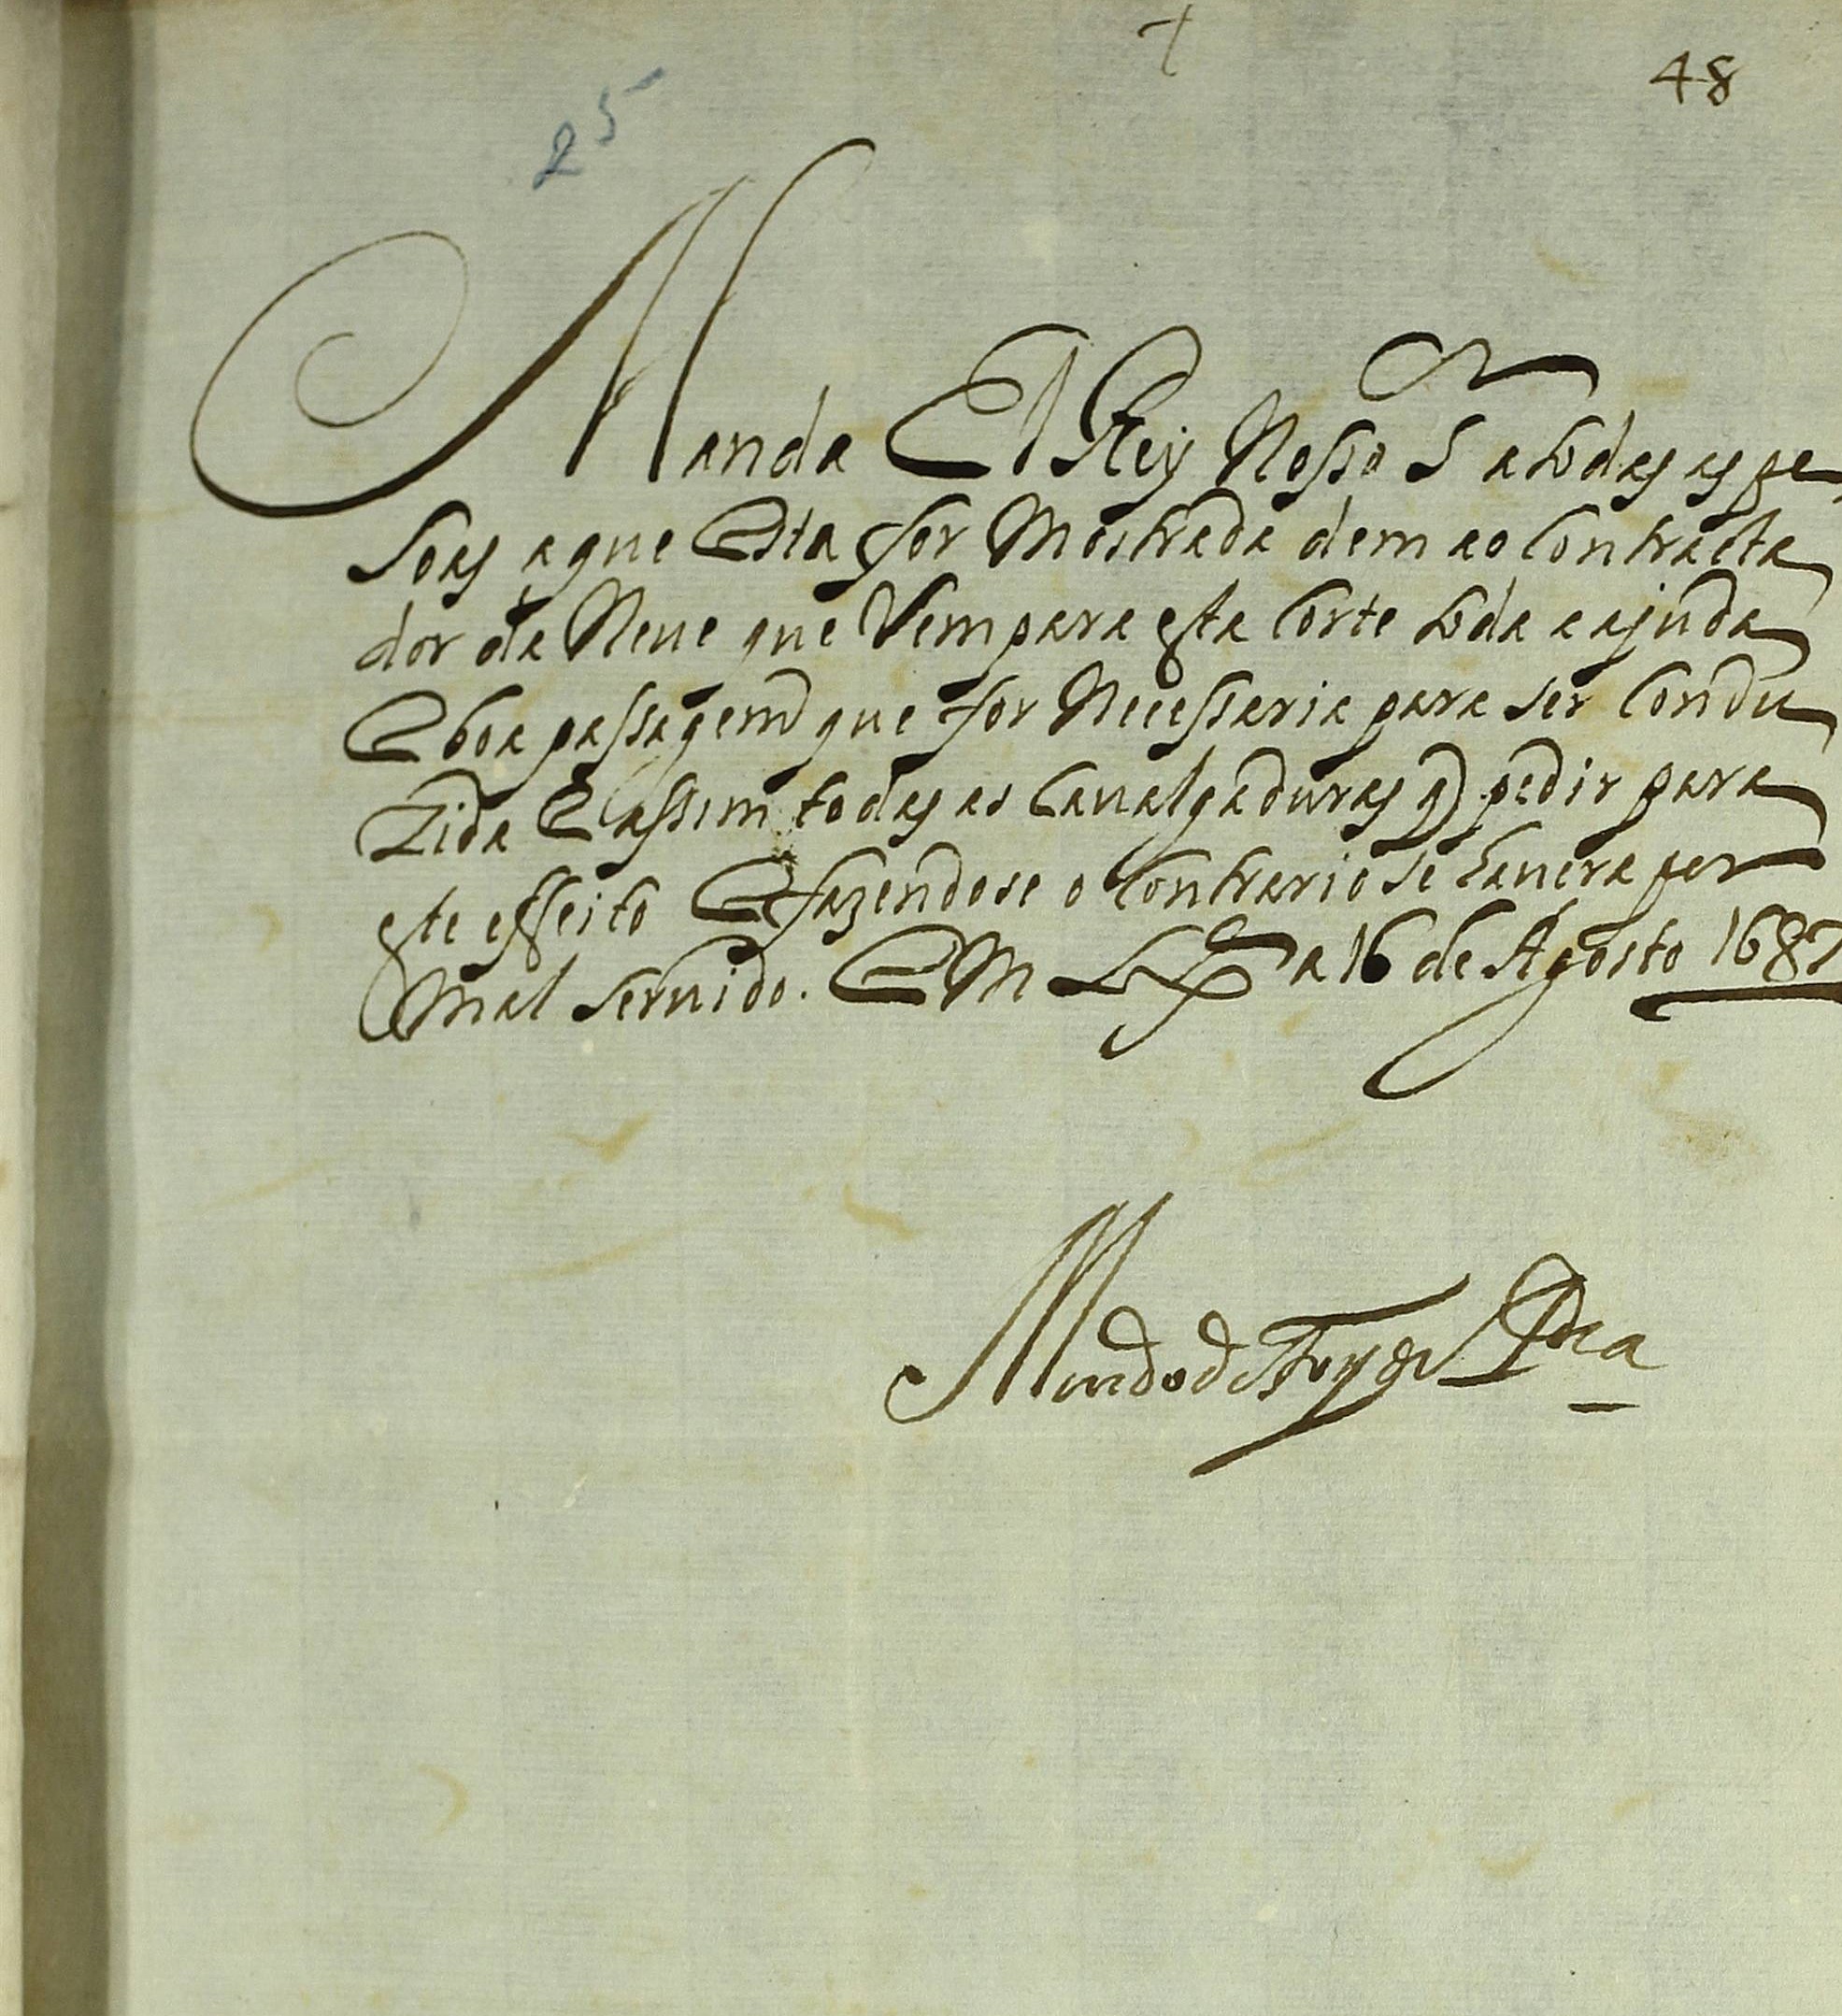 48
25
Manda El Rey Nosso S a todas as pe
soas a que Esta for Mostrada dem ao Contracta
dor da Neue que Vem para esta Corte toda a ajuda
E boa passagem que for Necessaria para ser Condu
Zida E assim todas as Caualgaduras q pedir para
este effeito E fazendose o Contrario se hauera por
Mal seruido. EM Lxª a 16 de Agosto 1687
Mendo de Foyos Prª